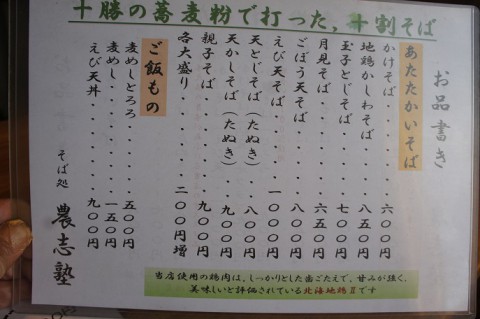 十勝の蕎麦粉で打った,十割そば
お品書き
あたたかいそば
かけそば・・・・・・・六〇〇円
地鶏かしわそば・・・・・八五〇円
玉子とじそば・・・・・・七〇〇円
月見そば・・・・・・・六五〇円
ごぼう天そば・・・・・・八〇〇円
えび天そば・・・・・一〇〇〇円
天とじそば(たぬき)・・八〇〇円
天かしそば(たぬき)・・九〇〇円
親子そば・・・・・・・九〇〇円
各大盛り・・・・・・二〇〇円増
ご飯もの
麦めしとろろ・・・・・五〇〇円
麦めし・・・・・・・・一五〇円
えび天丼・・・・・・・九〇〇円
そば処 農志塾
当店使用の鶏肉は、しっかりとした歯ごたえで、甘みが強く、
美味しいと評価されている北海地鶏Ⅱです